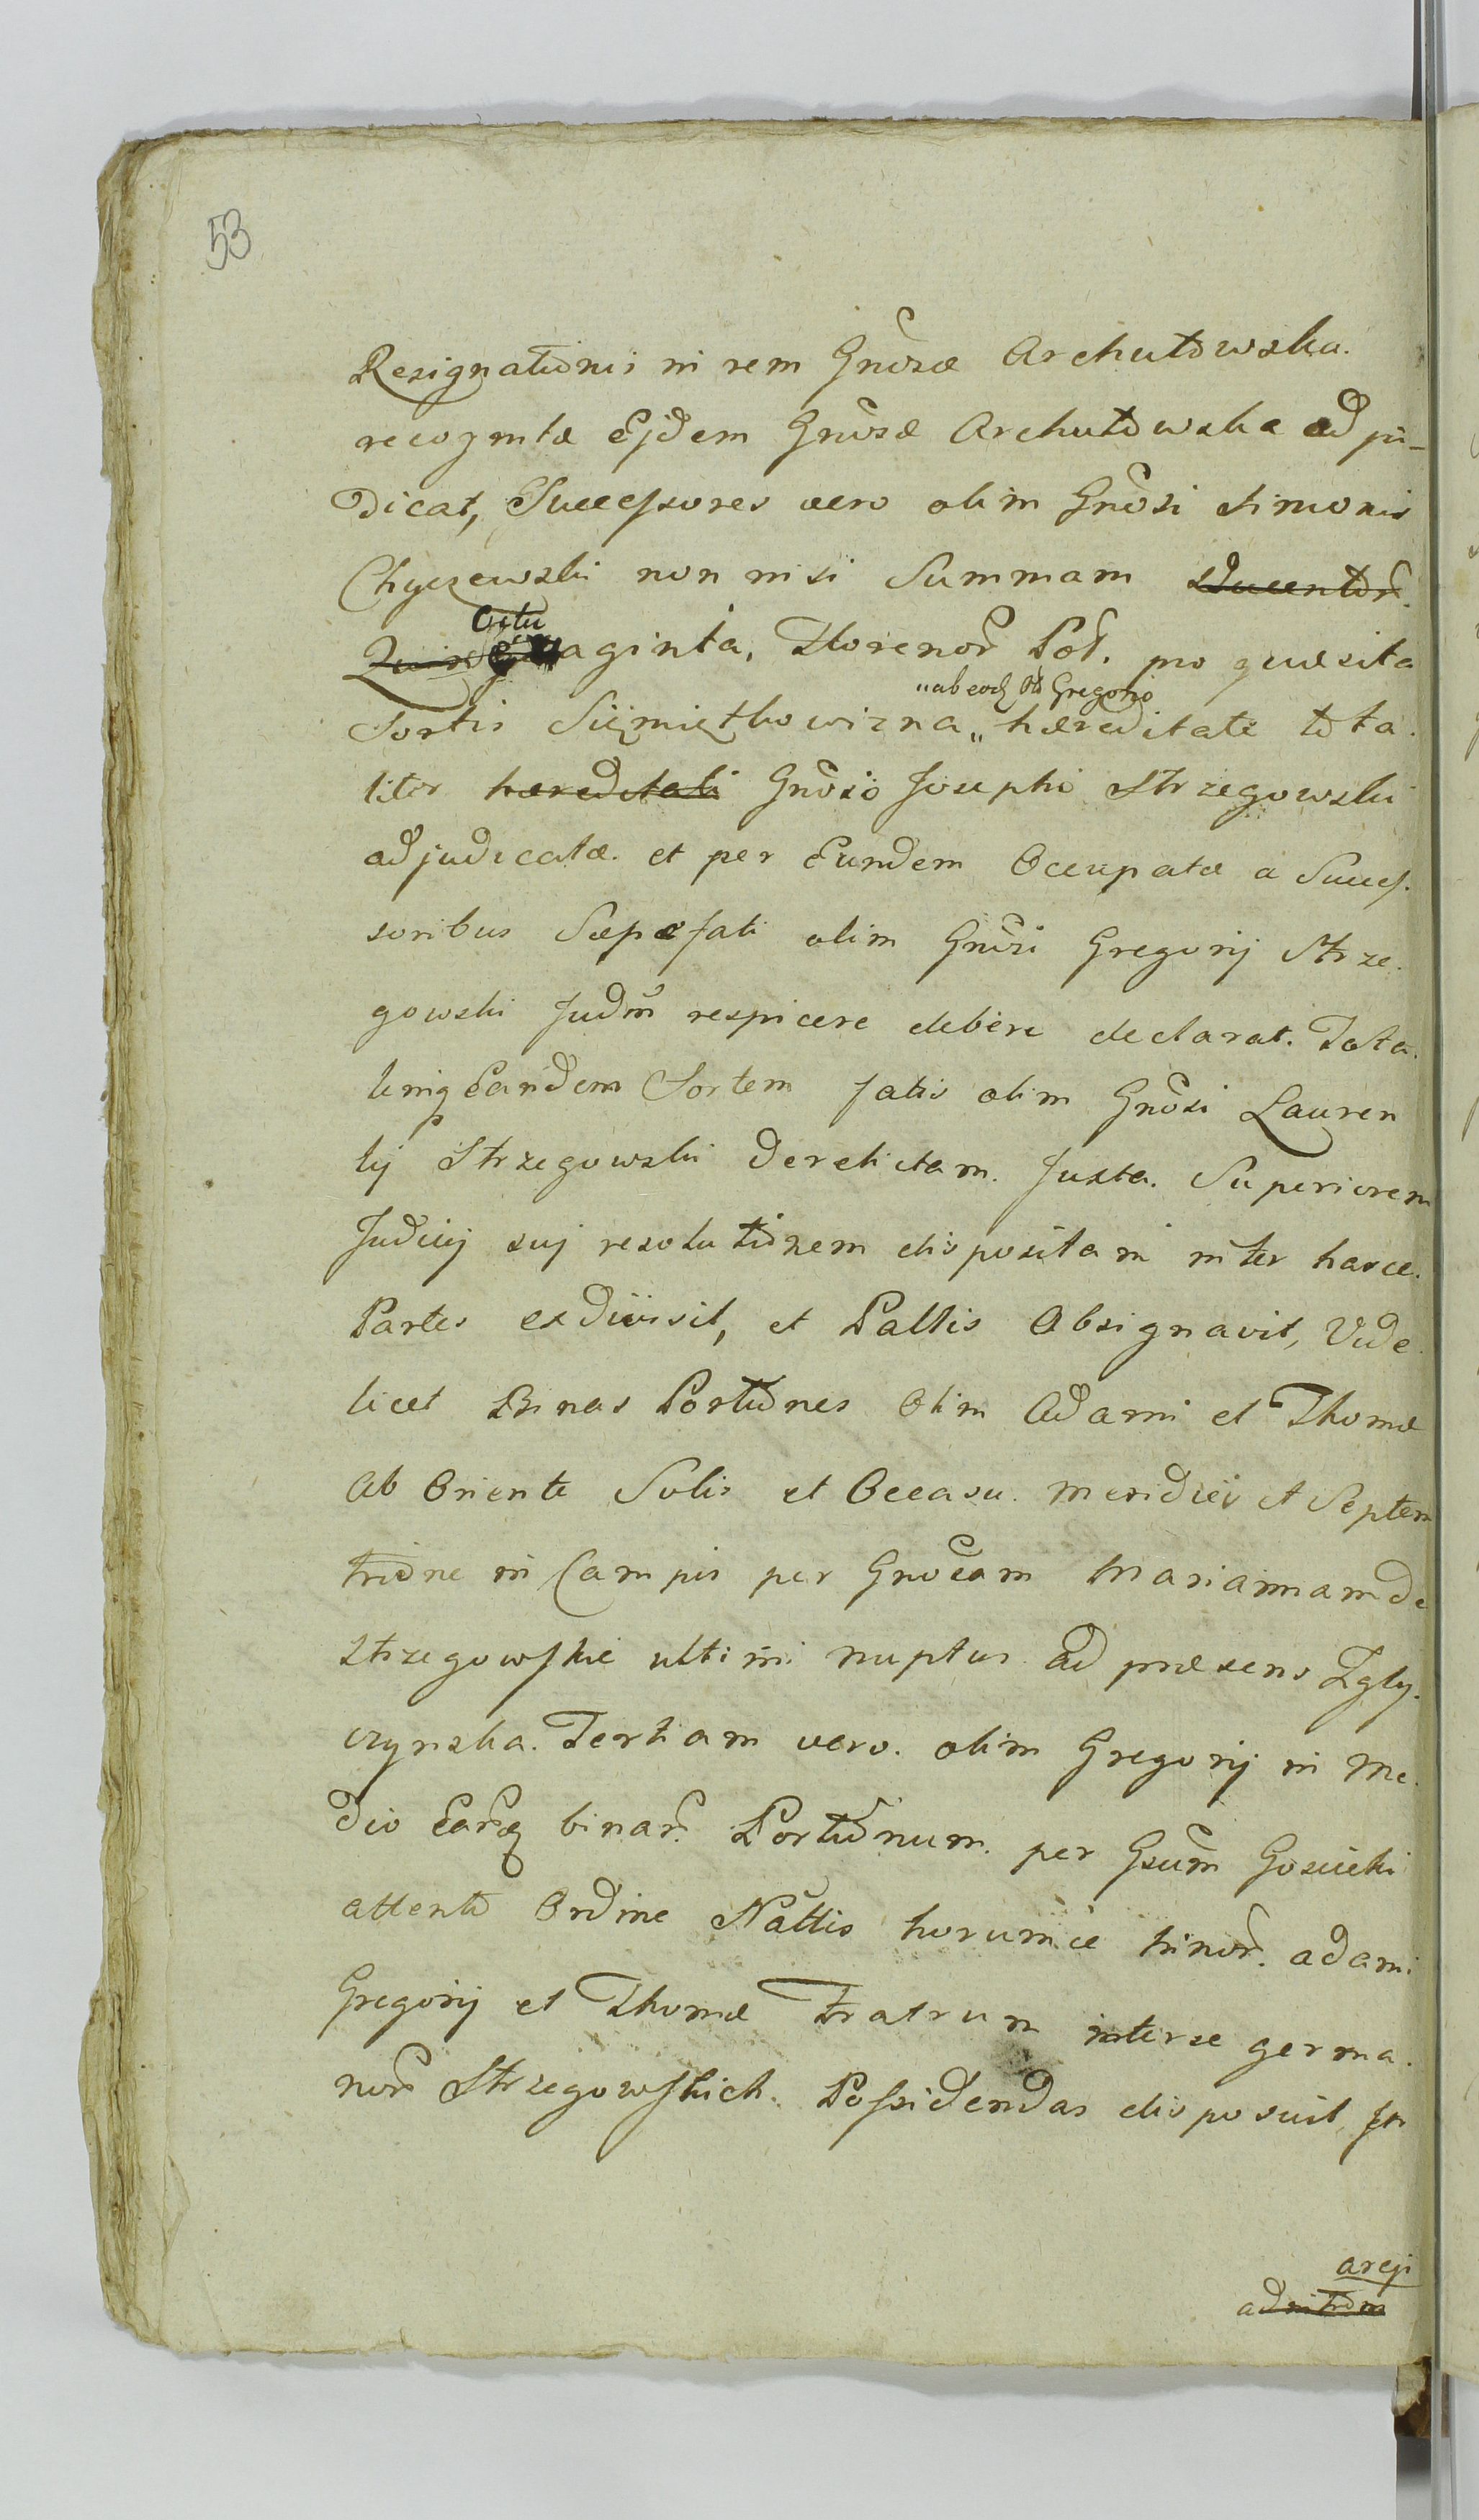 53
Resignationis in rem Gnosæ Archutowska.
recognitæ Ejdem Gnosæ Archutowska adju-
dicat, Successores vero olim Gnosi Simonis
Chyczewski non nisi Summam Ducentor.
Octu
Quinquaginta, Florenor Pol. pro quæsita
"ab eod Gregorio
Sortis Sięmiętkowizna" hæreditate tota.
liter hæreditati Gnoso Josepho Strzegowski
adjudicatæ. et per Eundem Occupatæ a Succes.
soribus Sæpefati olim Gnosi Gregorij Strze.
gowski Judm respicere debere declarat. Tota.
lemq Eandem Sortem fatis olim Gnosi Lauren
tij Strzegowski derelictam. Juxta. Superiorem
Judicij suj resolutionem dispositam inter hasce.
Partes exdivisit, et Pallis Absignavit, Vide.
licet Binas Portiones Olim Adami et Thomæ
Ab Oriente Solis et Occasu. Meridiei et Septem
trione in Campis per Gnosam Mariannam de
Strzegowskie ultimi nuptus ad præsens Zgly.
czynska. Tertiam vero. olim Gregorij in Me.
dio Earq binar. Portionum. per Gsum Gosiicki
attento Ordine Nattis horumce trinor. adami
Gregorij et Thomæ Fratrum interse germa.
nor Strzegowskich. Possidendas disposuit, In
areji